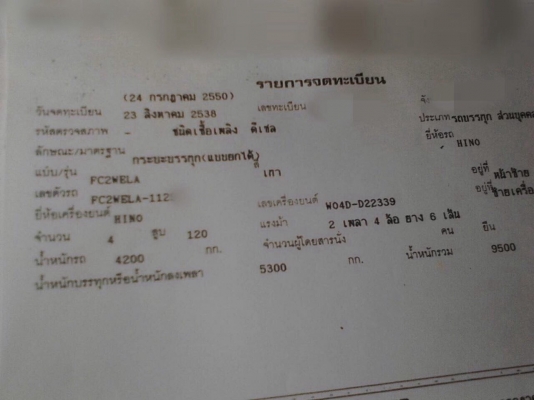 รายการจดทะเบียน
(24 กรกฎาคม 2550)
วันจดทะเบียน 23 สิงหาคม 2538 เลขทะเบียน ประเภทรถบรรทุก ส่วนบุคคล
รหัสตรวจสภาพ - ชนิดเชื้อเพลิง ดีเซล ยี่ห้อรถ HINO
ลักษณะ/มาตรฐาน กระบะบรรทุก(แบบยกได้)
แบบ/รุ่น FC2WELA เทา อยู่ที่ หน้าซ้าย
เลขตัวรถ FC2WELA-112 เลขเครื่องยนต์ W04D-D22339 อยู่ที่ ซ้ายเครื่อ
ยี่ห้อเครื่องยนต์ HINO แรงม้า 2 เพลา 4 ล้อ ยาง 6 เส้น
จำนวน 4 สูบ 120 จำนวนผู้โดยสารนั่ง คน ยืน
น้ำหนักรถ 4200 กก. 5300 กก. น้ำหนักรวม 9500
น้ำหนักบรรทุกหรือน้ำหนักลงเพลา